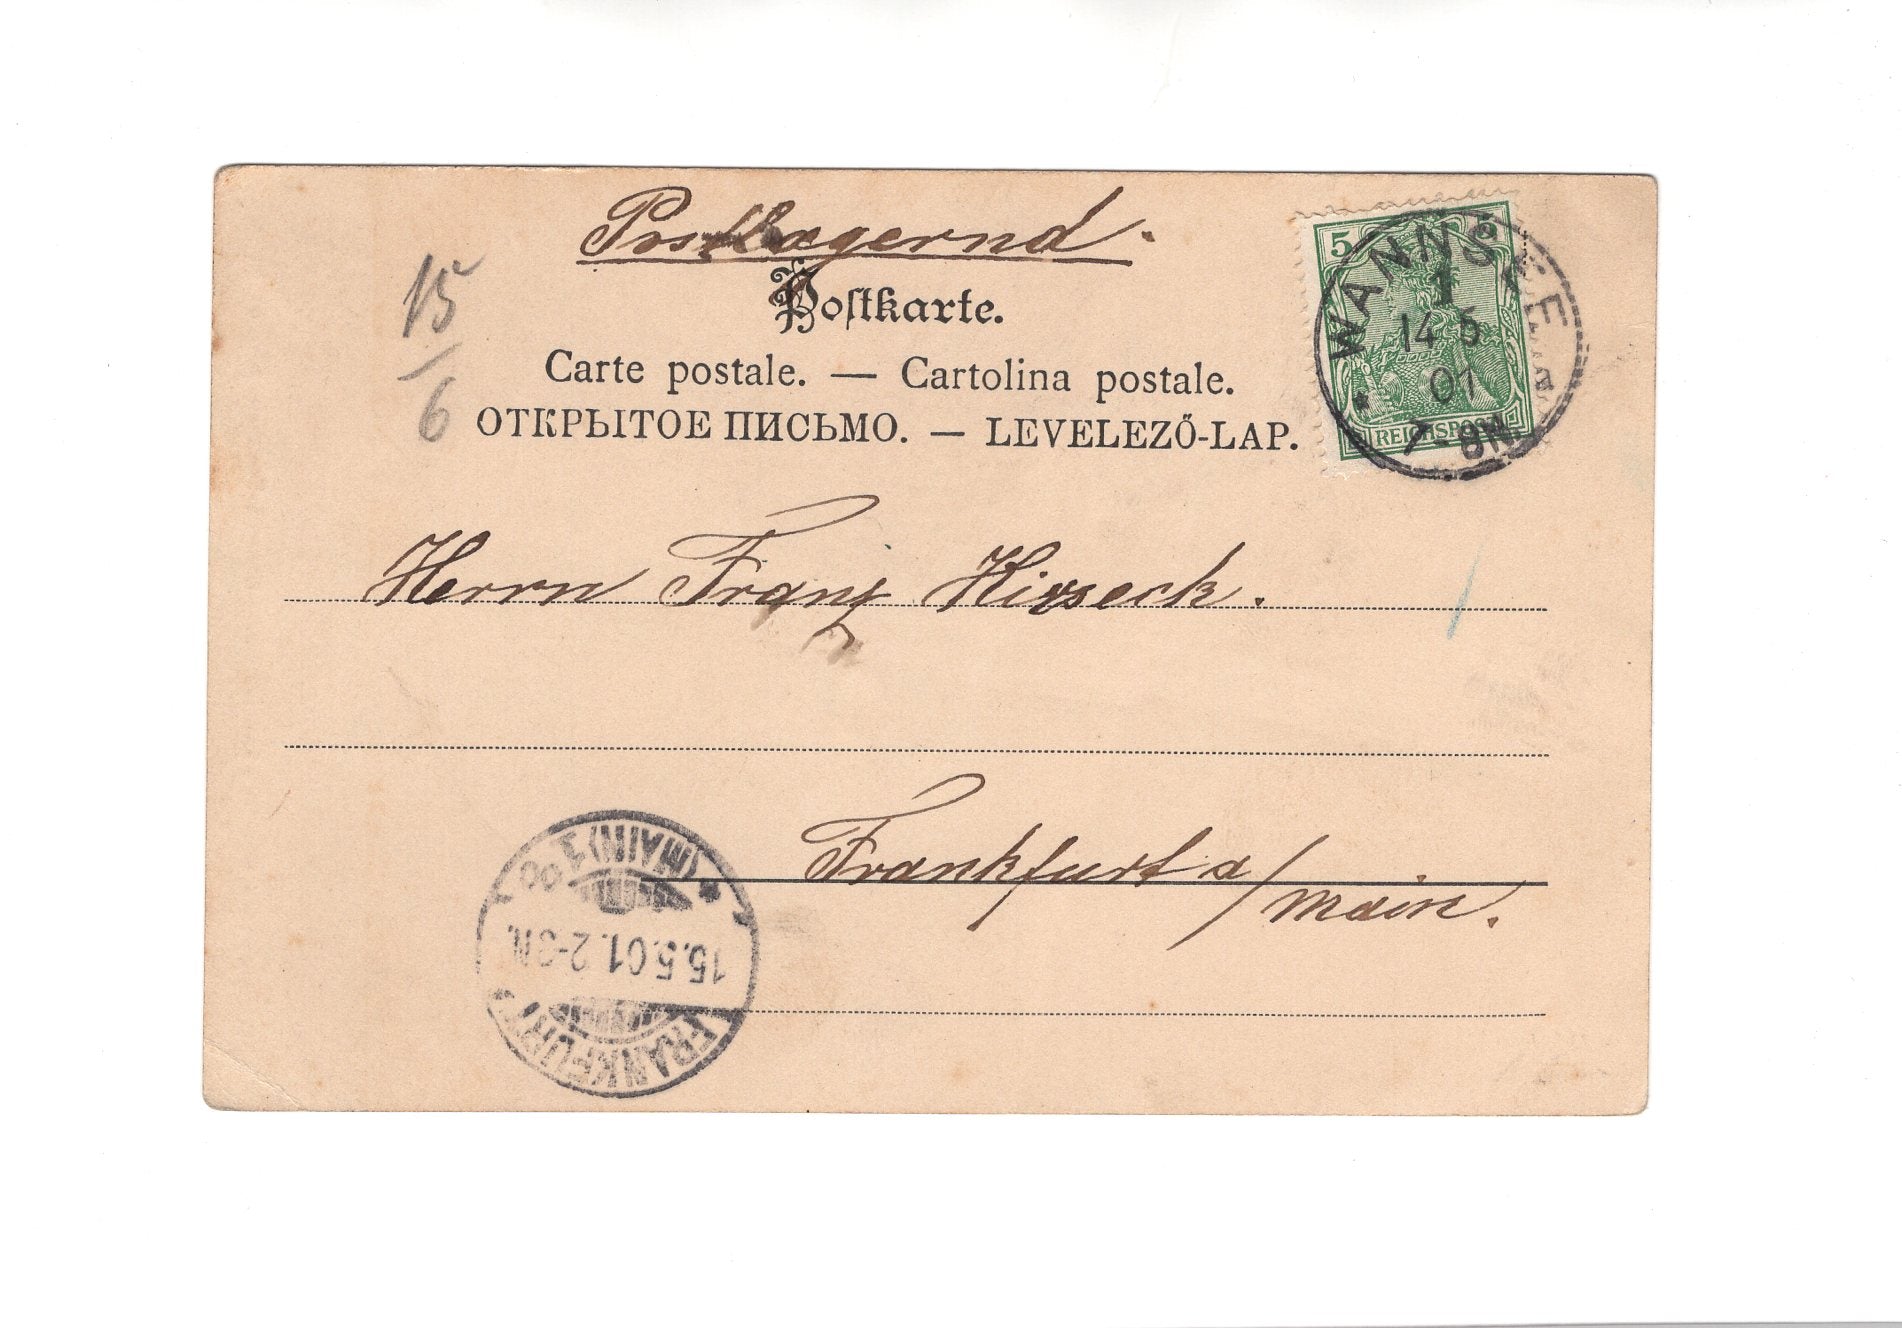 Postlagernd.
15
/
6
Postkarte.
Carte postale. — Cartolina postale.
ОТКРЫТОЕ ПИСЬМО. — LEVELEZŐ-LAP.
5
REICHSPOST
WANNSEE
1
14 5
01
7-8N.
Herrn Franz Hirseck.
Frankfurt a/
Main.
FRANKFURT
15.5.01.2-3N.
(MAIN) 1